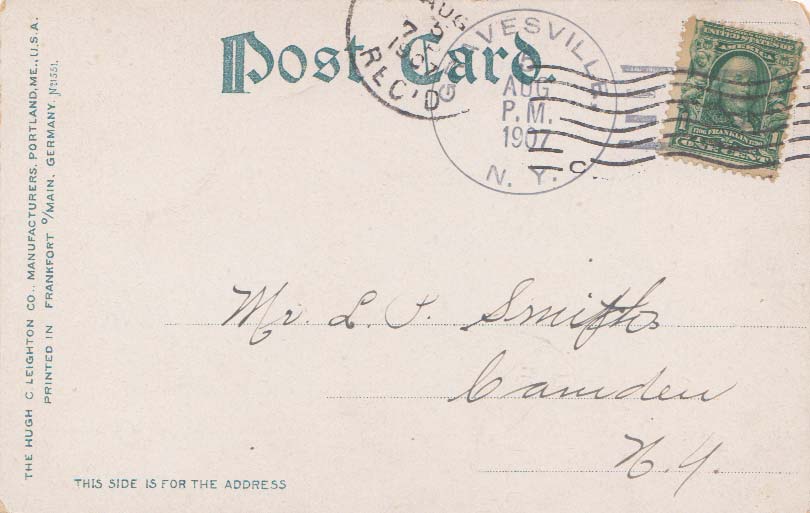 Post Card.
AUG
5
7-
1907
REC'D
GRAVESVILLE,
5
AUG
P.M.
1907
N. Y.
UNITED STATES OF
AMERICA
FRANKLIN
1
ONE CENT
Mr. L. P. Smith
Camden
N.Y.
THIS SIDE IS FOR THE ADDRESS
THE HUGH C. LEIGHTON CO., MANUFACTURERS, PORTLAND, ME., U.S.A.
PRINTED IN FRANKFORT o/MAIN, GERMANY. No 1551.